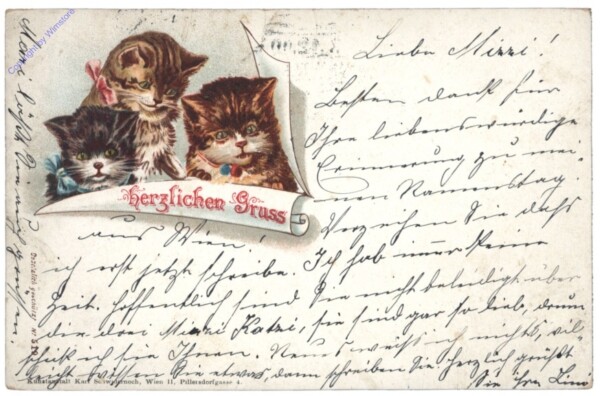 Liebe Mizzi!
Besten Dank für
Ihre liebenswürdige
Erinnerung zu mei-
nen Namenstag
Verzeihen Sie daß
Herzlichen Gruss
aus Wien!
ich erst jetzt schreibe. Ich hab immer keine
Zeit. Hoffentlich sind Sie nicht beleidigt über
die drei Mizzi Katzi, sie sind gar so lieb, drum
schick ich sie Ihnen. Neues weiß ich nichts, viel-
leicht wissen Sie etwas, dann schreiben Sie. Herzlich grüßt
Sie ihre
Kunstanstalt Karl Schwidernoch, Wien II, Pillersdorfgasse 4.
Copyright by Wimstore